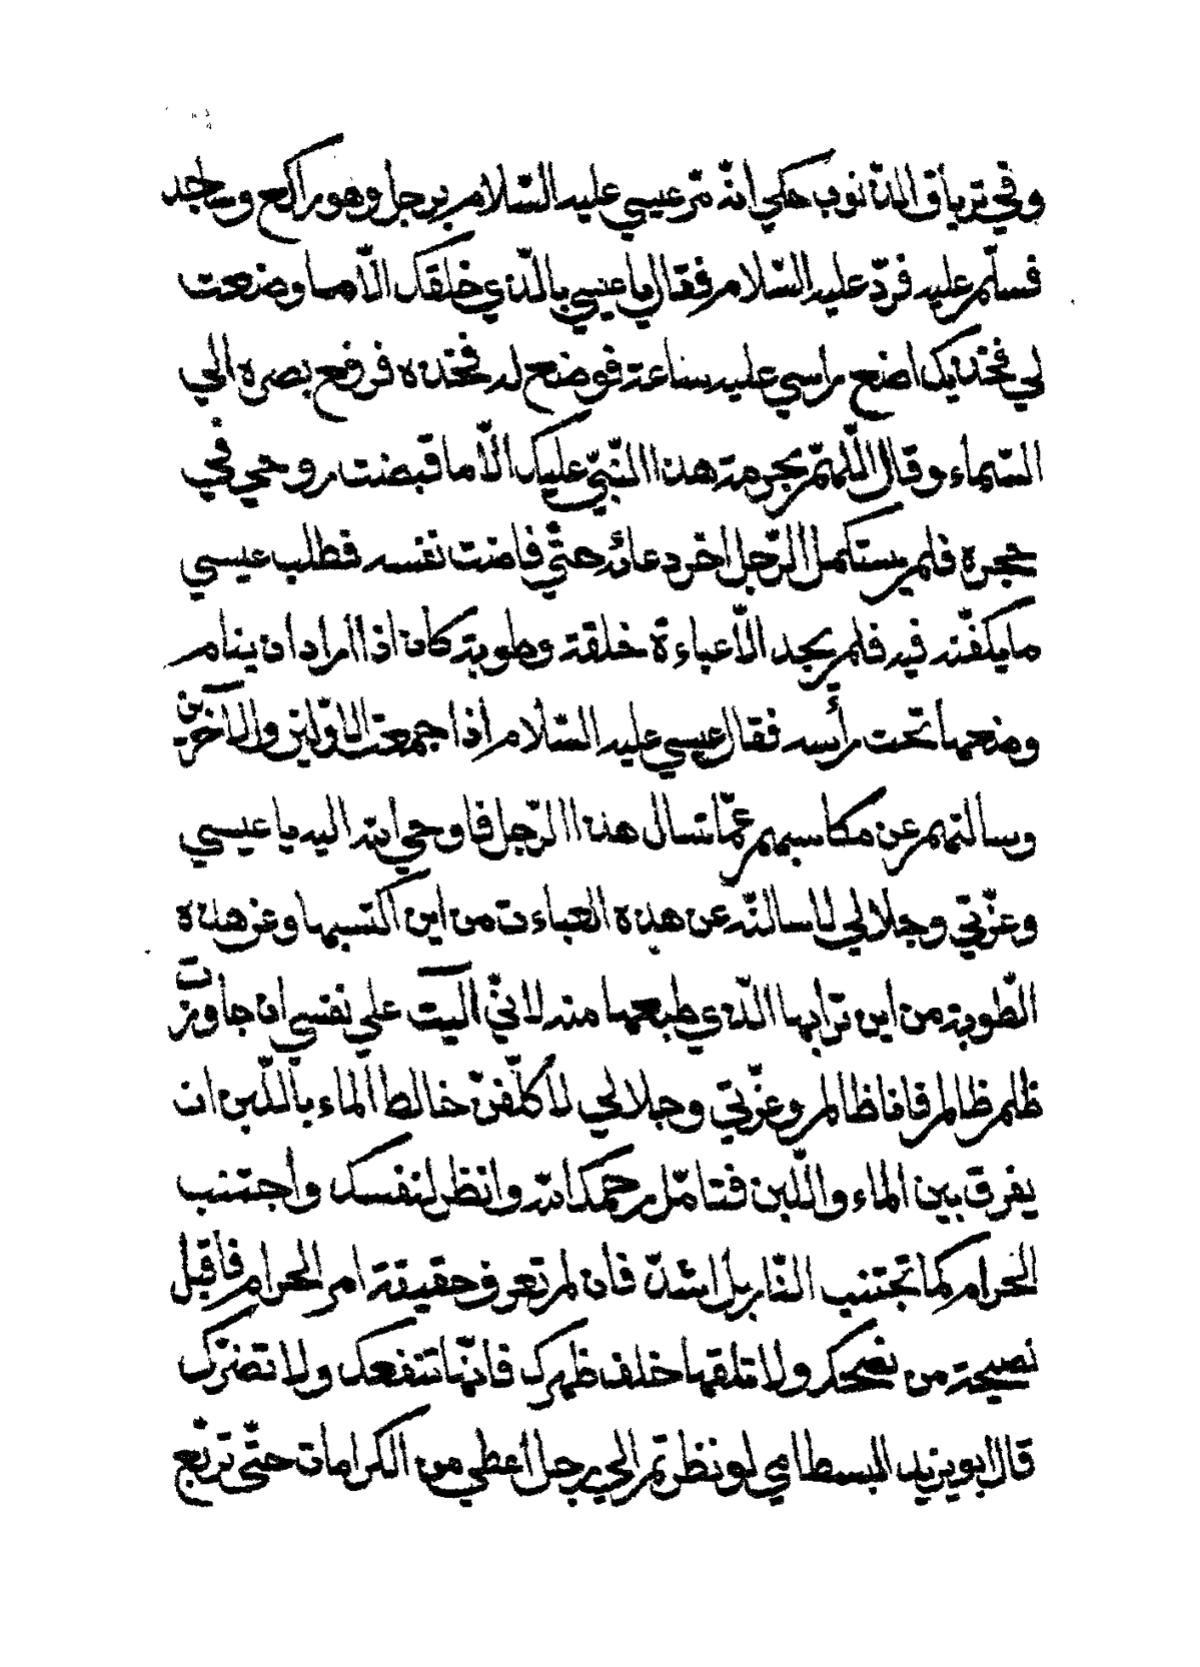 وفي ترياق الذنوب حكي انّه مرّ عيسي عليه السّلام برجل وهو راكع وساجد
فسلّم عليه فردّ عليه السّلام فقال يا عيسي بالّذي خلقك الّا ما وضعت
لي فخذيك اضع راسي عليه ساعة فوضع له فخذه فرفع بصره الي
السّماء وقال اللّهمّ بحرمة هذا النّبيّ عليك الّا ما قبضت روحي في
حجره فلم يستكمل الرّجل اخر دعائه حتّي فاضت نفسه فطلب عيسي
ما يكفّنه فيه فلم يجد الّا عباءة خلقة وطوبة كان اذا اراد ان ينام
وضعها تحت رأسه فقال عيسي عليه السّلام اذا جمعت الاوّلين والآخرين
وسالتهم عن مكاسبهم عمّا تسال هذا الرّجل فاوحي الله اليه يا عيسي
وعزّتي وجلالي لاسالنّه عن هذه العباءت من اين اكتسبها وعن هذه
الطّوبة من اين ترابها الّذي طبعها منه لانّي آليت علي نفسي ان جاوزت
ظلم ظالم فانا ظالم وعزّتي وجلالي لاكلّفنّ خالط الماء باللّبن ان
يفرق بين الماء واللّبن فتامّل رحمك الله وانظر لنفسك واجتنب
الحرام كما تجتنب النّار بل اشدّ فان لم تعرف حقيقة امر الحرام فاقبل
نصيحة من نصحك ولا تلقها خلف ظهرك فانّها تنفعك ولا تضرّك
قال ابو يزيد البسطامي لو نظرتم الي رجل أعطي من الكرامات حتّي تربّع